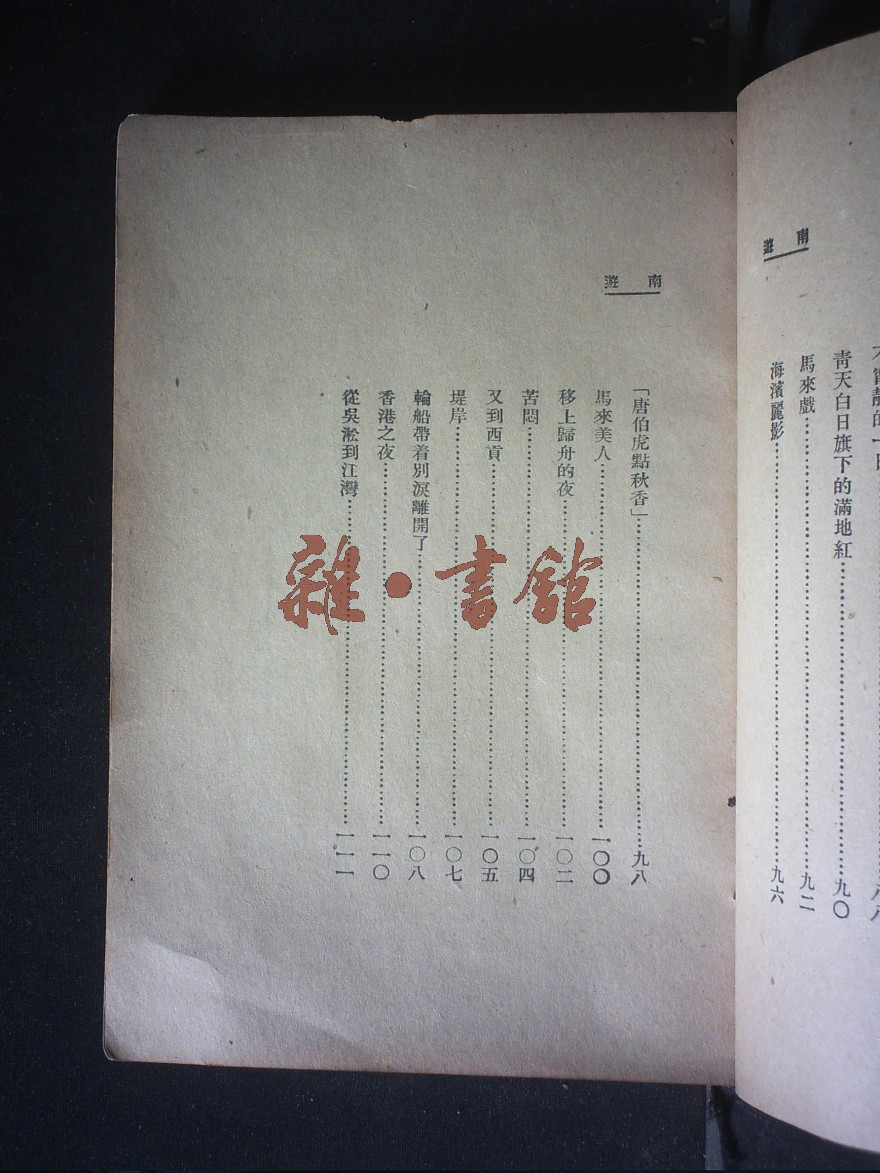 南遊
青天白日旗下的滿地紅……九〇
馬來戲……九二
海濱麗影……九六
南遊
「唐伯虎點秋香」……九八
馬來美人……一〇〇
移上歸舟的夜……一〇二
苦悶……一〇四
又到西貢……一〇五
堤岸……一〇七
輪船帶着別淚離開了……一〇八
香港之夜……一一〇
從吳淞到江灣……一一一
雜·書館